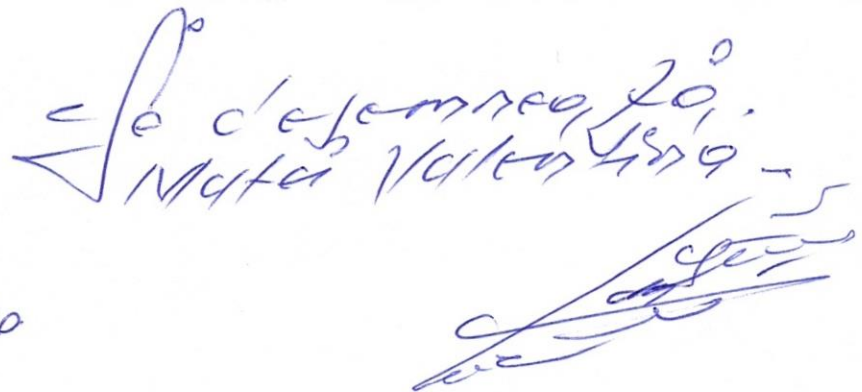 Se desemnează
Matei Valentina -